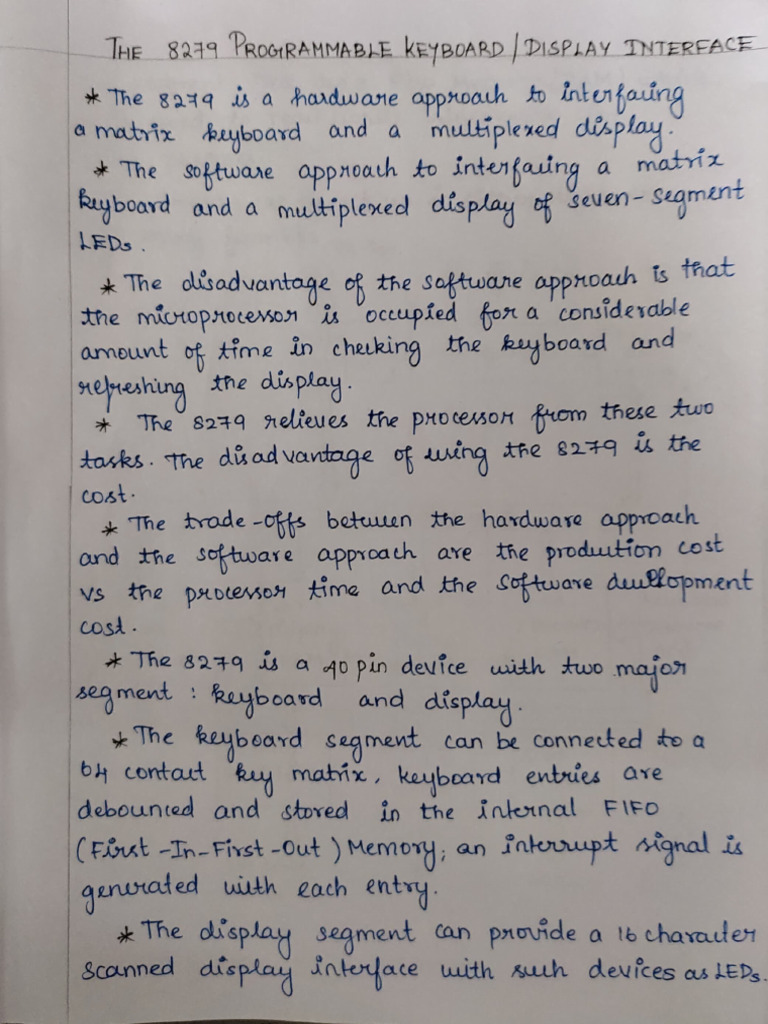 THE 8279 PROGRAMMABLE KEYBOARD / DISPLAY INTERFACE
* The 8279 is a hardware approach to interfacing
a matrix keyboard and a multiplexed display.
* The software approach to interfacing a matrix
keyboard and a multiplexed display of seven-segment
LEDs.
* The disadvantage of the software approach is that
the microprocessor is occupied for a considerable
amount of time in checking the keyboard and
refreshing the display.
* The 8279 relieves the processor from these two
tasks. The disadvantage of using the 8279 is the
cost.
* The trade-offs between the hardware approach
and the software approach are the production cost
vs the processor time and the software development
cost.
* The 8279 is a 40 pin device with two major
segment : keyboard and display.
* The keyboard segment can be connected to a
64 contact key matrix, keyboard entries are
debounced and stored in the internal FIFO
(First-In-First-Out) Memory; an interrupt signal is
generated with each entry.
* The display segment can provide a 16 character
scanned display interface with such devices as LEDs.